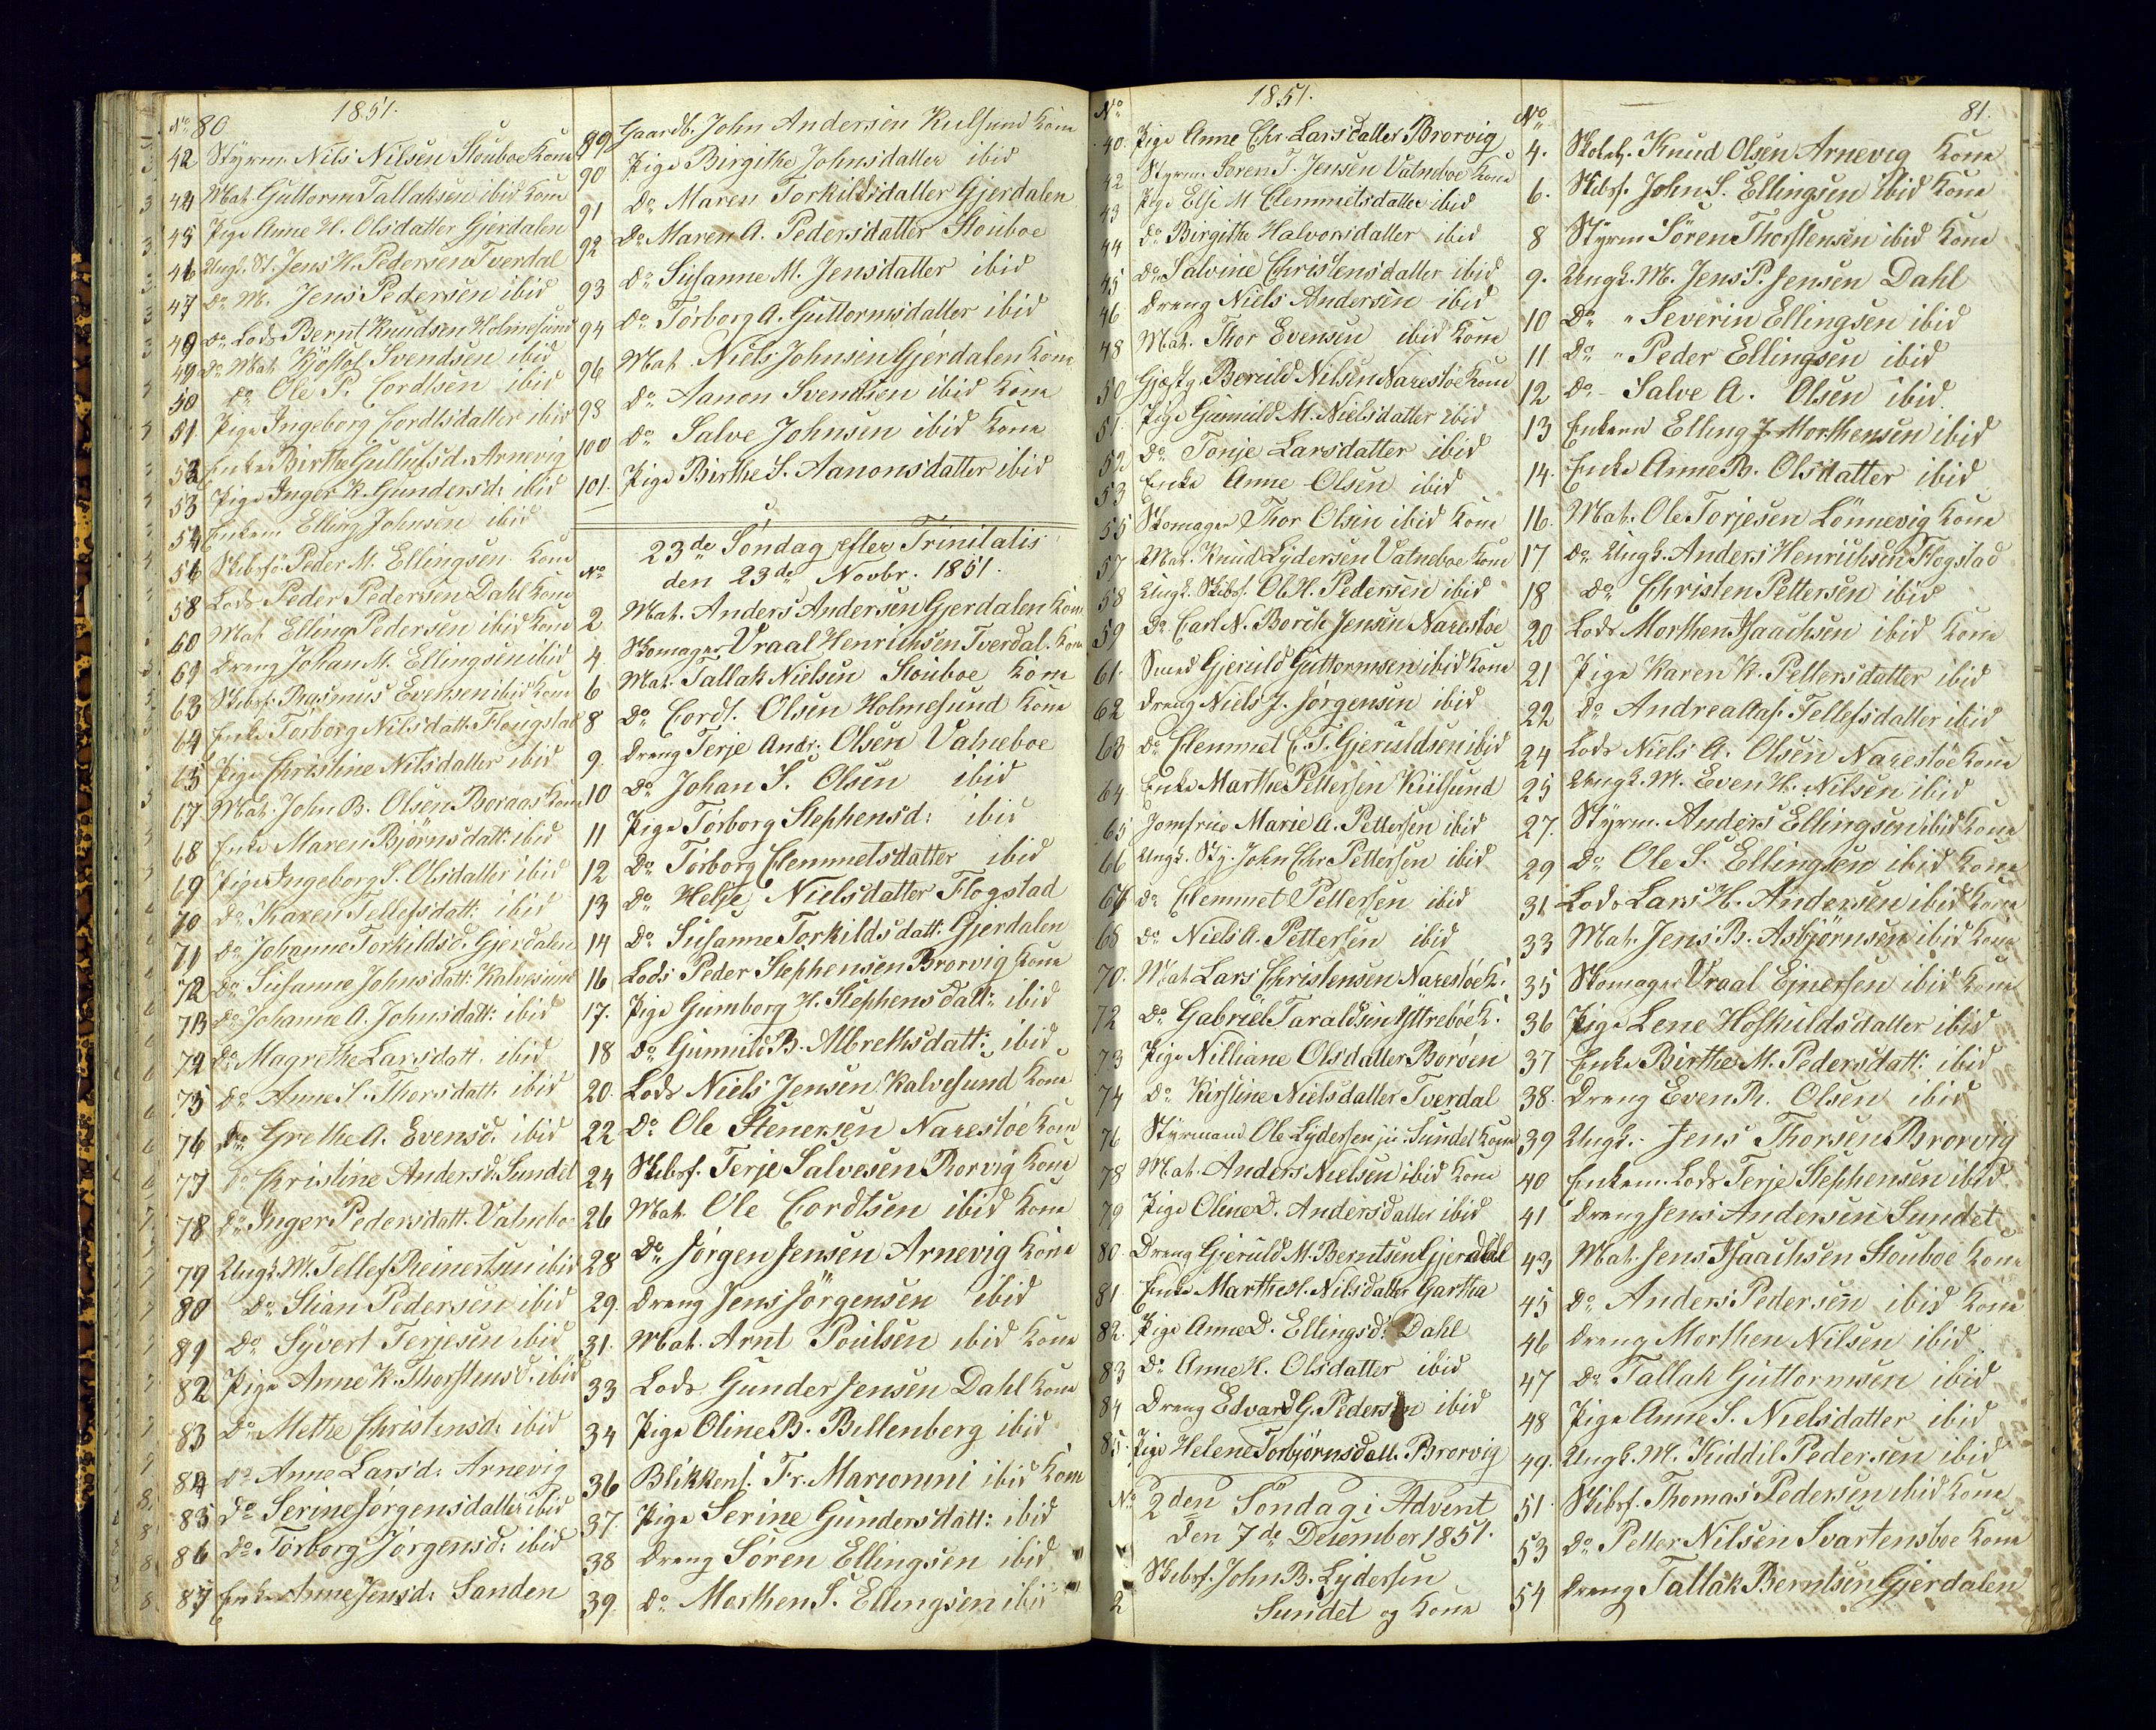 No 80
1851.
42 Styrm. Nils Nilsen Stouboe Kone
44 Mat. Guttorm Tallaksen ibid Kone
45 Pige Anne H. Olsdatter Gjerdalen
46 Ungk. St. Jens H. Pedersen Tverdal
47 Do M. Jens Pedersen ibid
48 Do Lods Bernt Knudsen Holmesund
49 Do Mat. Kjøstol Svendsen ibid
50 Do Ole P. Cordtsen ibid
51. Pige Ingeborg Cordtsdatter ibid
52 Enke Birthe Gullufsd. Arnevig
53 Pige Inger K. Gundersd: ibid
54 Enkem. Elling Johnsen ibid
56 Skibsf. Peder M. Ellingsen Kone
58 Lods Peder Pedersen Dahl Kone
60 Mat Elling Pedersen ibid Kone
61 Dreng Johan M. Ellingsen ibid
63 Skibsf. Rasmus Evensen ibid Kone
64 Enke Torborg Nilsdatt. Flougstad
65 Pige Christine Nilsdatter ibid
67 Mat. John B. Olsen Boraas Kone
68 Enke Maren Bjørnsdatt. ibid
69 Pige Ingeborg S. Olsdatter ibid
70 Do Karen Tellefsdatt: ibid
71 Do Johanne Torkildsd. Gjerdalen
72 Do Susanne Johnsdatt: Kalvesund
73 Do Johanne A. Johnsdatt: ibid
74 Do Magrethe Larsdatt. ibid
75 Do Anne S. Thorsdatt. ibid
76 Do Grethe A. Evensd. ibid
77 Do Christine Andersd. Sundet
78 Do Inger Pedersdatt. Vatneboe
79 Ungk. M. Tellef Reinertsen ibid
80 Do Stian Pedersen ibid
81 Do Syvert Terjesen ibid
82 Pige Anne K. Thorstensd. ibid
83 Do Methe Christensd: ibid
84 Do Anne Larsd: Arnevig
85 Do Serine Jørgensdatter ibid
86 Do Torborg Jørgensd: ibid
87 Enke Anne Jensd: Sanden
89 Gaardb. John Andersen Kulsund Kone
90 Pige Birgithe Johnsdatter ibid
91 Do Maren Torkildsdatter Gjerdalen
92 Do Maren A. Pedersdatter Stouboe
93 Do Susanne M. Jensdatter ibid
94 Do Torborg A. Guttormsdatter ibid
96 Mat. Niels Johnsen Gjerdalen Kone
98 Do Aanon Svendsen ibid Kone
100 Do Salve Johnsen ibid Kone
101. Pige Birthe S. Aanonsdatter ibid
23de Søndag efter Trinitatis
No den 23de Novbr. 1851.
2 Mat. Anders Andersen Gjerdalen Kone
4 Skomager Vraal Henrichsen Tverdal. Kone
6 Mat. Tallak Nielsen Stouboe Kone
8 Do Cordt. Olsen Holmesund Kone
9. Dreng Terje Andr: Olsen Vatneboe
10 Do Johan S. Olsen ibid
11 Pige Torborg Stephensd: ibid
12 Do Torborg Clemmetsdatter ibid
13 Do Helje Nielsdatter Flogstad
14 Do Susanne Torkildsdatt: Gjerdalen
16 Lods Peder Stephensen Brorvig Kone
17. Pige Gumborg H. Stephensdatt: ibid
18 Do Gunnild B. Albrethsdatt: ibid
20. Lods Niels Jensen Kalvesund Kone
22 Do Ole Stenersen Narestøe Kone
24 Skibsf. Terje Salvesen Brorvig Kone
26 Mat. Ole Cordtsen ibid Kone
28 Do Jørgen Jensen Arnevig Kone
29. Dreng Jens Jörgensen ibid
31. Mat. Arnt Poulsen ibid Kone
33 Lods Gunder Jensen Dahl Kone
34 Pige Oline B. Billenberg ibid
36 Blikkensl. Fr. Marconini ibid Kone
37. Pige Serine Gundersdatt: ibid
38 Dreng Søren Ellingsen ibid
39. Do Morthen S. Ellingsen ibid
No 1851.
40. Pige Anne Chr Larsdatter Brorvig
42 Styrm. Søren T. Jensen Vatneboe Kone
43 Pige Else M Clemmetsdatter ibid
44 Do Birgithe Halvorsdatter ibid
45 Do Salvine Christensdatter ibid
46 Dreng Niels Andersen ibid
48 Mat. Thor Evensen ibid Kone
50 Gjæstg. Beruld Nilsen Narestøe Kone
51. Pige Gunnild M. Nielsdatter ibid
52 Do Tonje Larsdatter ibid
53 Enke Anne Olsen ibid
55 Skomager Thor Olsen ibid Kone
57 Mat. Knud Lydersen Vatneboe Kone
58 Ungk. Skibsf. Ol H. Pedersen ibid
59 Do Carl N. Borch Jensen Narestøe
61. Smed Gjeruld Guttormsen ibid Kone
62 Dreng Niels J. Jørgensen ibid
63 Do Clemmet C. T. Gjeruldsen ibid
64 Enke Marthe Pettersen Kiilsund
65 Jomfrue Marie A. Pettersen ibid
66 Ungk. Sty. John Chr Pettersen ibid
67 Do Clemmet Pettersen ibid
68 Do Niels A. Pettersen ibid
70. Mat. Lars Christensen Narestøe K.
72 Do Gabriel Taraldsen Yttrebøe K.
73 Pige Nilliane Olsdatter Borøen
74 Do Kirstine Nielsdatter Tverdal
76 Styrmand Ole Lydersen jn: Sundet Kone
78 Mat. Anders Nielsen ibid Kone
79 Pige Oline D. Andersdatter ibid
80. Dreng Gjeruld M. Berntsen Gjerdal
81. Enke Marthe H. Nilsdatter Gartha
82. Pige Anne D. Ellingsd: Dahl
83 Do Anne H. Olsdatter ibid
84 Dreng Edvard G. Pedersen ibid
85. Pige Helene Torbjørnsdatt. Brorvig
No 2den Søndag i Advent
den 7de December 1851.
Skibsf. John B. Lydersen
2 Sundet og Kone
No 81.
4. Skoleh. Knud Olsen Arnevig Kone
6. Skibsf. John S. Ellingsen ibid Kone
8 Styrm Sören Thorstensen ibid Kone
9. Ungk. M. Jens P. Jensen Dahl
10 Do " Severin Ellingsen ibid
11 Do " Peder Ellingsen ibid
12 Do - Salve A. Olsen ibid.
13 Enkem Elling J Morthensen ibid
14. Enke Anne B. Olsdatter ibid
16. Mat. Ole Torjesen Lönnevig Kone
17 Do Ungk. Anders Henrichsen Flogstad
18 Do Christen Pettersen ibid
20 Lods Morthen Isaachsen ibid Kone
21 Pige Karen K. Pettersdatter ibid
22 Do Andrea Aas. Tellefsdatter ibid
24 Lods Niels A. Olsen Narestöe Kone
25 Ungk. M. Even H. Nilsen ibid
27. Styrm. Anders Ellingsen ibid Kone
29 Do Ole S. Ellingsen ibid Kone
31 Lods Lars H. Andersen ibid Kone
33 Mat. Jens B. Asbjörnsen ibid Kone
35 Skomager Vraal Ejnersen ibid Kone
36 Pige Lene Hofkuldsdatter ibid
37 Enke Birthe M. Pedersdatt: ibid
38. Dreng Even R. Olsen ibid
39 Ungk: Jens Thorsen Brorvig
40 Enkem. Lods Terje Stephensen ibid.
41 Dreng Jens Andersen Sundet
43 Mat. Jens Isaachsen Stouboe Kone
45 Do Anders Pedersen ibid Kone
46 Dreng Morthen Nilsen ibid
47 Do Tallak Guttormsen ibid
48 Pige Anne S. Nielsdatter ibid
49. Ungk. M. Kiddil Pedersen ibid
51. Skibsf. Thomas Pedersen ibid Kone
53 Do Petter Nilsen Svartensboe Kone
54 Dreng Tallak Berntsen Gjerdalen